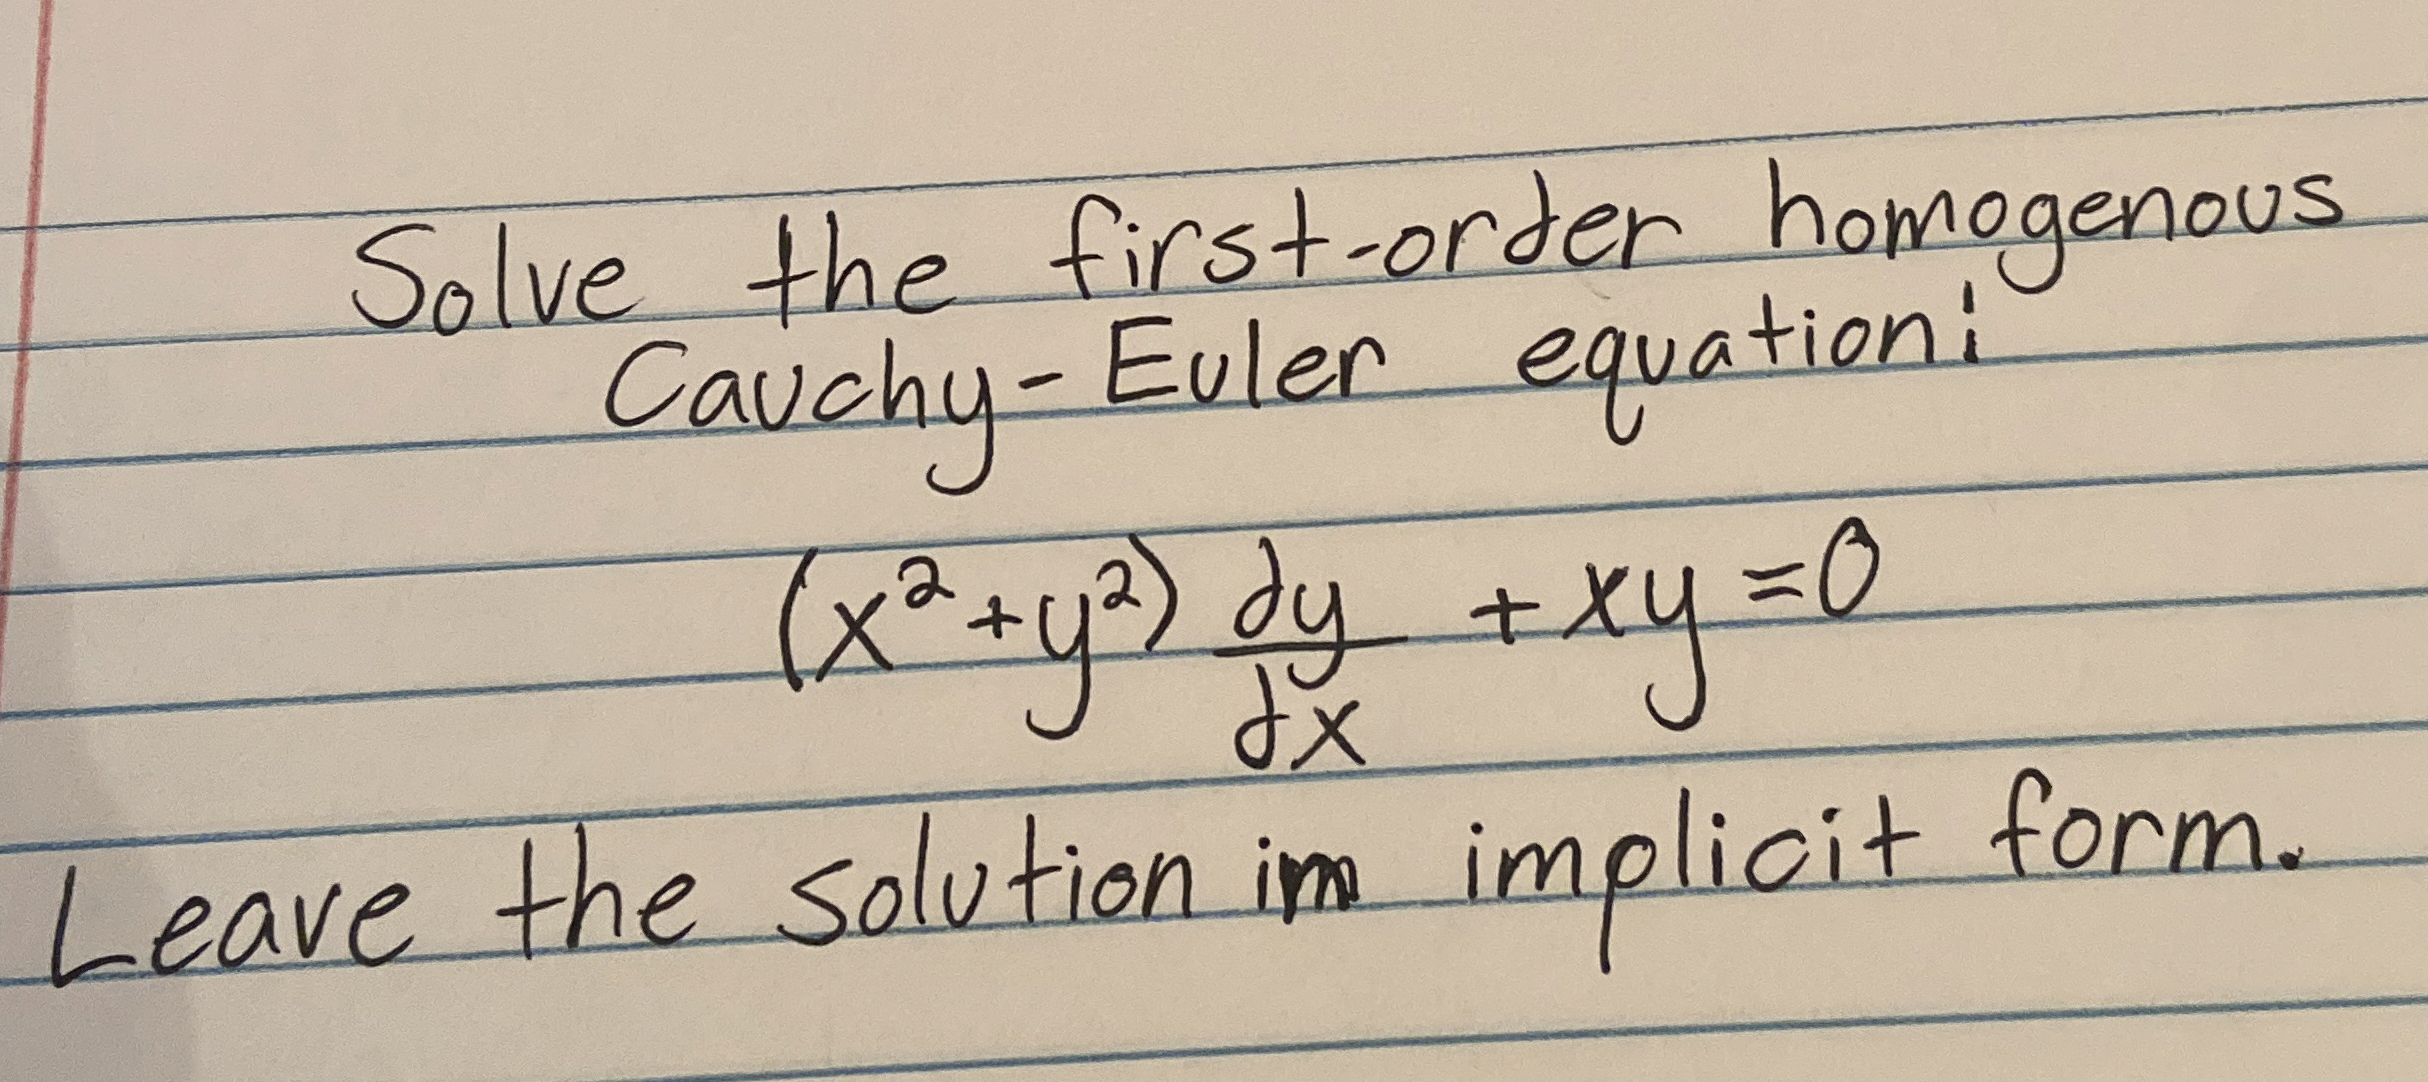 Solve the first-order homogenous
Cauchy-Euler equation:
(x²+y²) dy/dx + xy = 0
Leave the solution in implicit form.